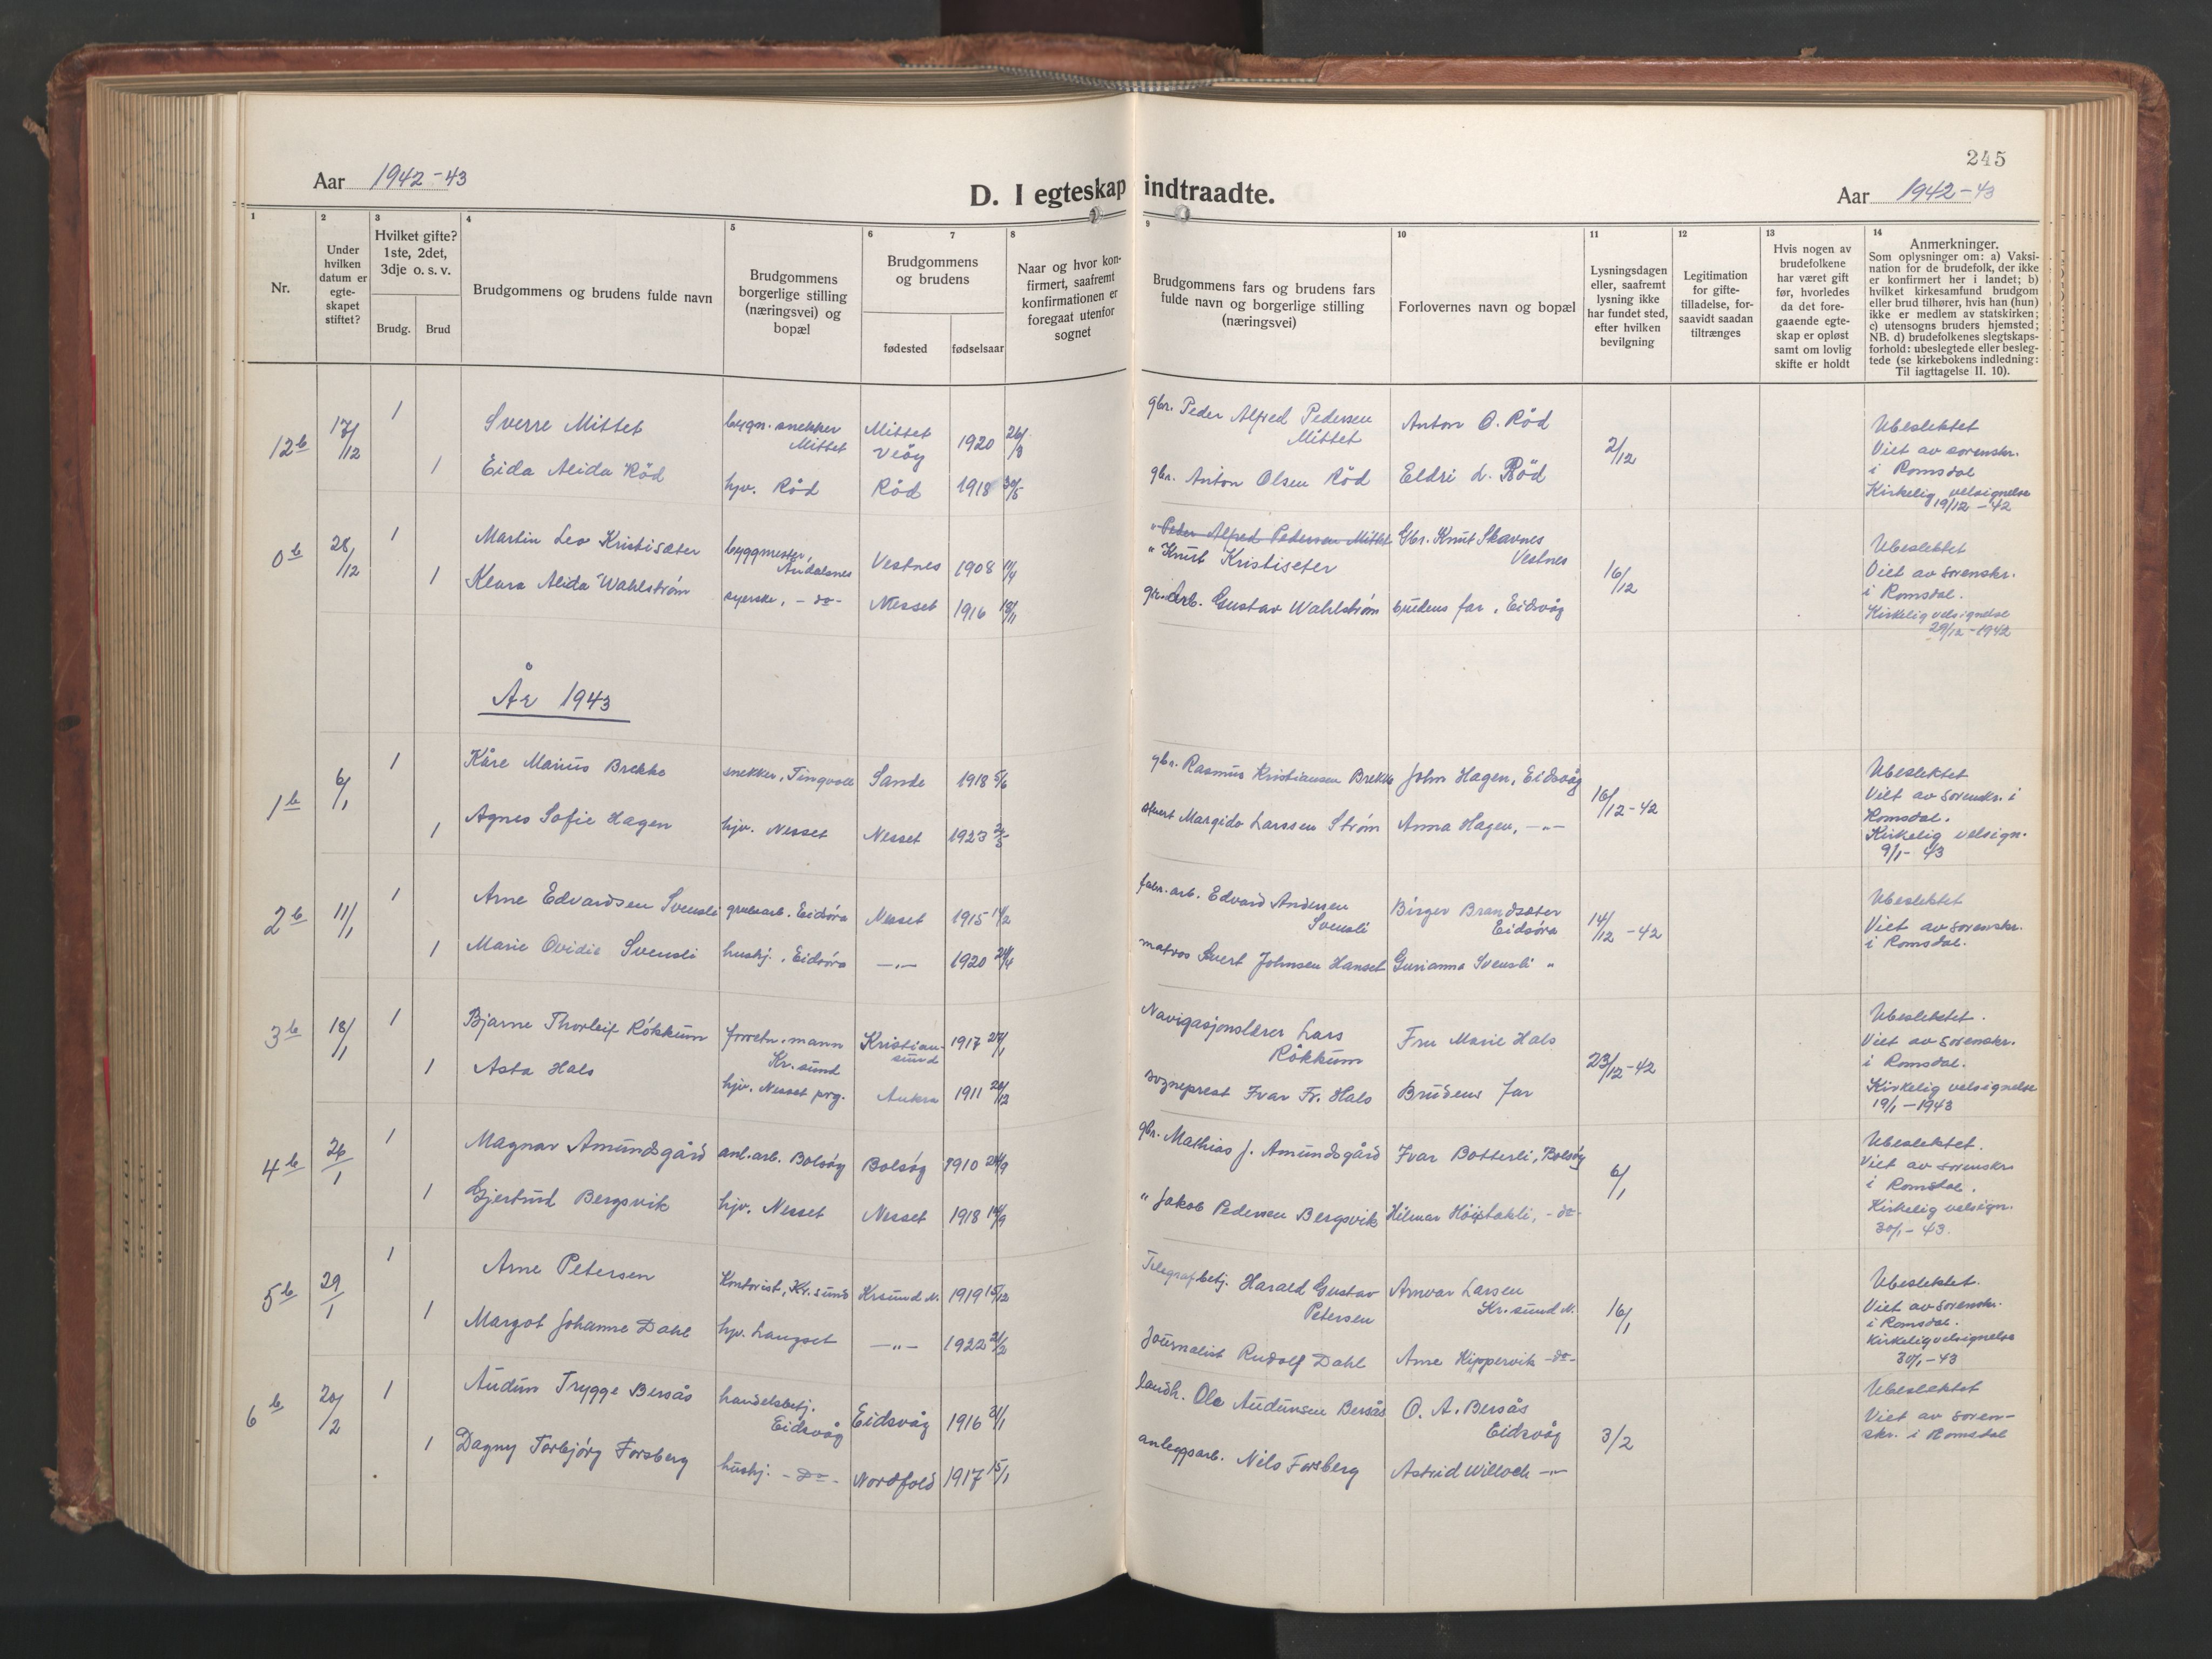 245
Aar 1942-43
D. I egteskap indtraadte.
Aar 1942-43
1 2 3 4 5 6 7 8 9 10 11 12 13 14
Nr.
Under
hvilken
datum er
egte-
skapet
stiftet?
Hvilket gifte?
1ste, 2det,
3dje o. s. v.
Brudg. Brud
Brudgommens og brudens fulde navn
Brudgommens
borgerlige stilling
(næringsvei) og
bopæl
Brudgommens
og brudens
fødested fødselsaar
Naar og hvor kon-
firmert, saafremt
konfirmationen er
foregaat utenfor
sognet
Brudgommens fars og brudens fars
fulde navn og borgerlige stilling
(næringsvei)
Forlovernes navn og bopæl
Lysningsdagen
eller, saafremt
lysning ikke
har fundet sted,
efter hvilken
bevilgning
Legitimation
for gifte-
tilladelse, for-
saavidt saadan
tiltrænges
Hvis nogen av
brudefolkene
har været gift
før, hvorledes
da det fore-
gaaende egte-
skap er opløst
samt om lovlig
skifte er holdt
Anmerkninger.
Som oplysninger om: a) Vaksi-
nation for de brudefolk, der ikke
er konfirmert her i landet; b)
hvilket kirkesamfund brudgom
eller brud tilhører, hvis han (hun)
ikke er medlem av statskirken;
c) utensogns bruders hjemsted;
NB. d) brudefolkenes slegtskaps-
forhold: ubeslegtede eller besleg-
tede (se kirkebokens indledning:
Til iagttagelse II. 10).
12b 17/12 1 Sverre Mittet bygn. snekker
Mittet Mittet
Veöy 1920 26/9 gbr. Peder Alfred Pedersen
Mittet Anton O. Röd 2/12
1 Eida Alida Röd hjv. Röd Röd 1918 30/5 gbr. Anton Olsen Röd Eldri L. Röd
Ubeslektet
Viet av sorenskr.
i Romsdal
Kirkelig velsignelse
19/12-42
0b 28/12 1 Martin Leo Kristisæter byggmester,
Åndalsnes Vestnes 1908 11/4 " Peder Alfred Pedersen Mittet
" Knut Kristiseter Gbr. Knut Skavnes
Vestnes 16/12
1 Klara Alida Wahlström syerske, -do- Nesset 1916 18/11 gr.arb. Gustav Wahlström brudens far, Eidsvåg
Ubeslektet
Viet av sorenskr.
i Romsdal.
Kirkelig velsignelse
29/12-1942
År 1943
1b 6/1 1 Kåre Marius Brekke snekker, Tingvoll Sande 1918 5/6 gbr. Rasmus Kristiansen Brekke John Hagen, Eidsvåg 16/12-42
1 Agnes Sofie Hagen hjv. Nesset Nesset 1923 Margido Larssen Ström Anna Hagen, -"-
Ubeslektet
Viet av sorenskr. i
Romsdal.
Kirkelig velsign.
9/1-43
2b 11/1 1 Arne Edvardsen Svensli grubearb. Eidsöra Nesset 1915 14/2 fabr.arb. Edvard Andersen
Svensli Birger Brandsæter
Eidsöra 14/12-42
1 Marie Ovidie Svensli hushj., Eidsöra -"- 1920 24/4 matros Sivert Johnsen Hanset Gurianna Svensli "
Ubeslektet
Viet av sorenskr.
i Romsdal.
3b 18/1 1 Bjarne Thorleif Rökkum forretn.mann
Kr.sund Kristian-
sund 1917 27/1 Navigasjonslærer Lars
Rökkum Fru Marie Hals 23/12-42
1 Asta Hals hjv. Nesset prg. Aukra 1911 26/12 sogneprest Ivar Fr. Hals Brudens far
Ubeslektet.
Viet av sorenskr.
i Romsdal.
Kirkelig velsignelse
19/1-1943
4b 26/1 1 Magnar Amundsgård anl.arb. Bolsöy Bolsöy 1910 24/9 gbr. Mathias J. Amundsgård Ivar Botterli, Bolsöy 6/1
1 Gjertrud Bergsvik hjv. Nesset Nesset 1918 14/9 " Jakob Pedersen Bergsvik Hilmar Höistakli, -do-
Ubeslektet.
Viet av sorenskr.
i Romsdal.
Kirkelig velsign.
30/1-43.
5b 29/1 1 Arne Petersen Kontorist, Kr.sund Krsund N. 1919 15/12 Telegrafbetj. Harald Gustav
Petersen Arnvar Larsen
Kr.sund N. 16/1
1 Margot Johanne Dahl hjv. Langset -"- 1922 21/2 Journalist Rudolf Dahl Arne Kippervik -do-
Ubeslektet.
Viet av sorenskr.
i Romsdal.
Kirkelig velsignelse
30/1-43
6b 20/2 1 Audun Trygge Bersås handelsbetj.
Eidsvåg Eidsvåg 1916 21/1 landh. Ole Audunsen Bersås O. A. Bersås
Eidsvåg 3/2
1 Dagny Torbjörg Forsberg hushj. -do- Nordfold 1917 15/1 anleggsarb. Nils Forsberg Astrid Willoch -"-
Ubeslektet
Viet av soren-
skr. i Romsdal